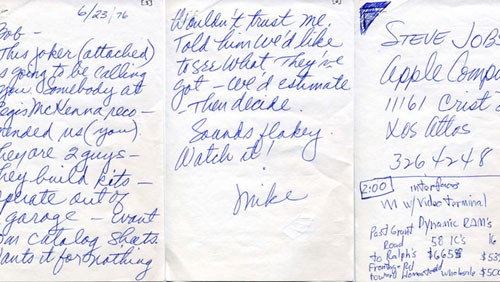 6/23/76
Bob —
This joker (attached)
is going to be calling
you. Somebody at
Regis McKenna reco-
mended us (you)
They are 2 guys —
they build kits —
operate out of
garage — want
catalog sheets.
wants it for nothing
Wouldn't trust me.
Told him we'd like
to see what they've
got — we'd estimate
— Then decide.
Sounds flakey.
Watch it!
Mike
STEVE JOBS
Apple Comp
11161 Crist
Los Altos
3264248
2:00
interfaces
w/ Video terminal
Dynamic RAM's
Past Grant
Road
58 IC's
16
to Ralph's
$665
toward Homestead
wholesale
$500